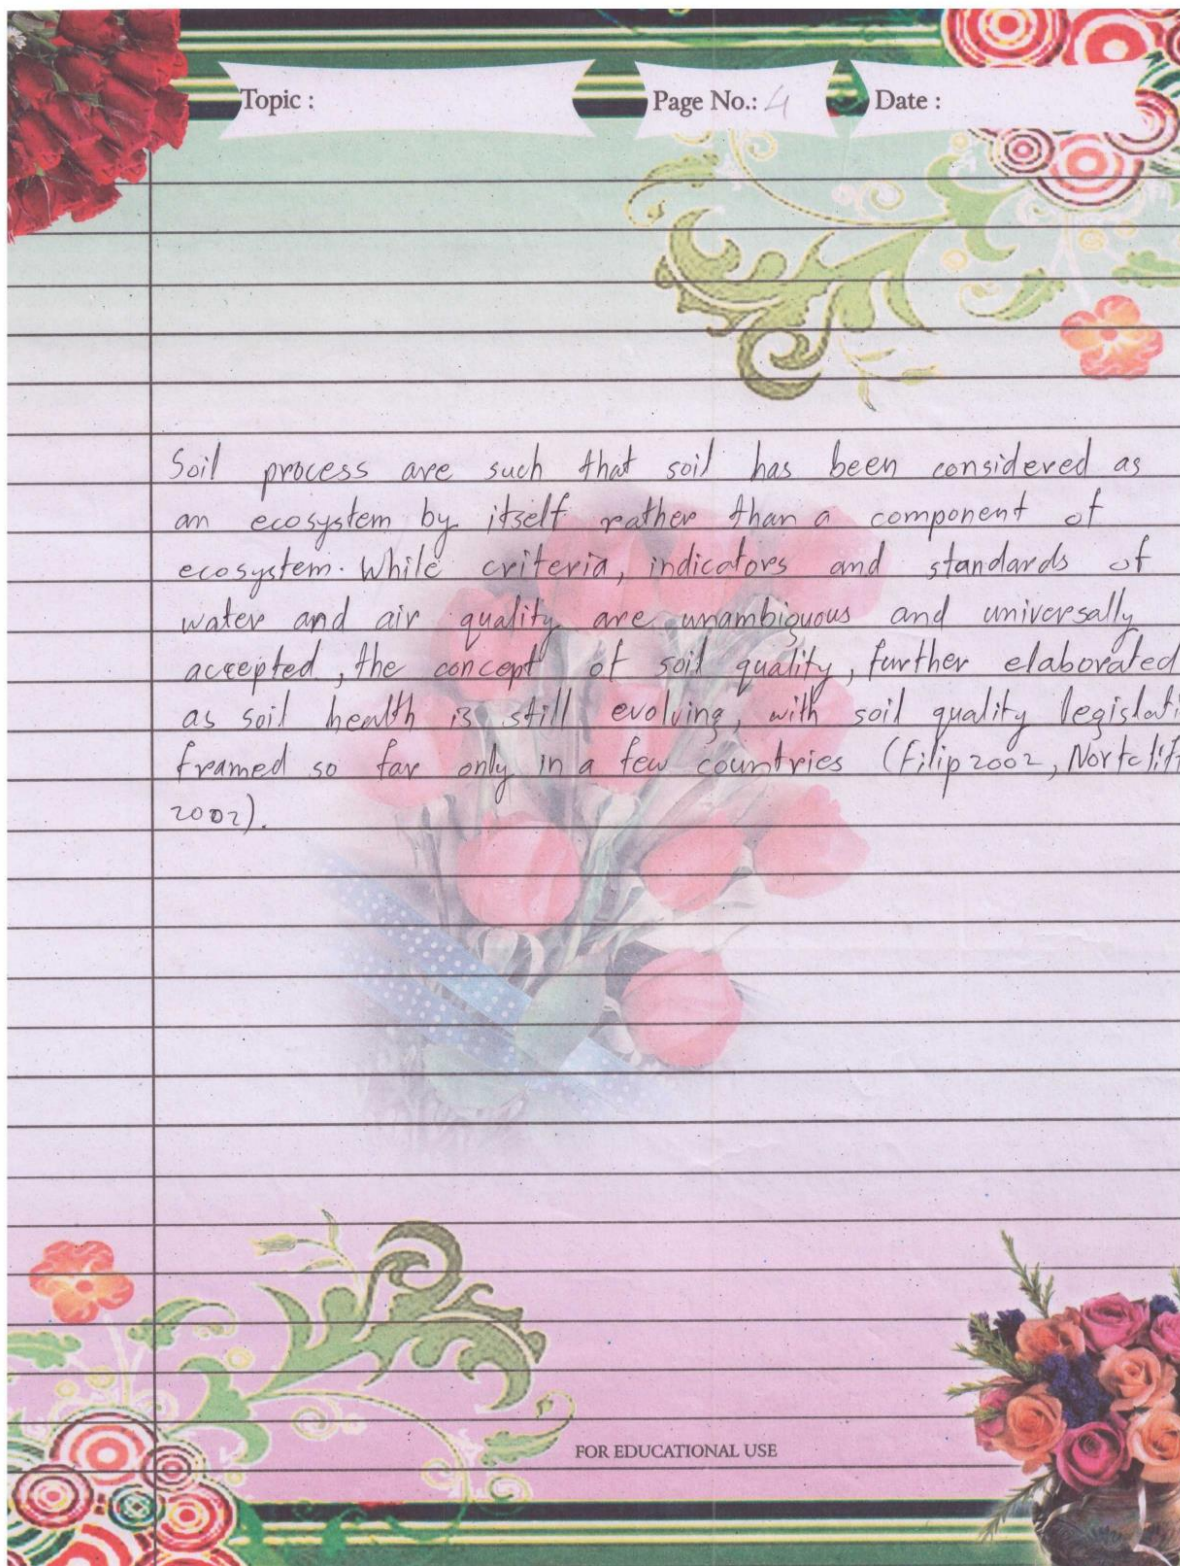 Topic :
Page No.: 4
Date :
Soil process are such that soil has been considered as
an ecosystem by itself rather than a component of
ecosystem. While criteria, indicators and standards of
water and air quality are unambiguous and universally
accepted, the concept of soil quality, further elaborated
as soil health is still evolving, with soil quality legislati
framed so far only in a few countries (Filip 2002, Nortcliff
2002).
FOR EDUCATIONAL USE